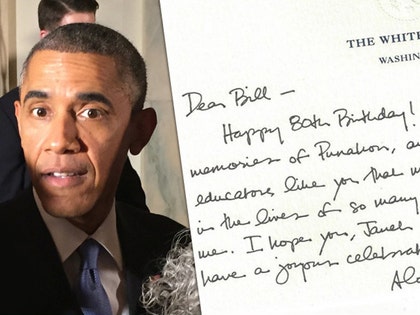 THE WHITE
WASHIN
Dear Bill —
Happy 80th Birthday!
memories of Punahou, a
educators like you that m
in the lives of so many
me. I hope you, Janet
have a joyous celebrat
Alo